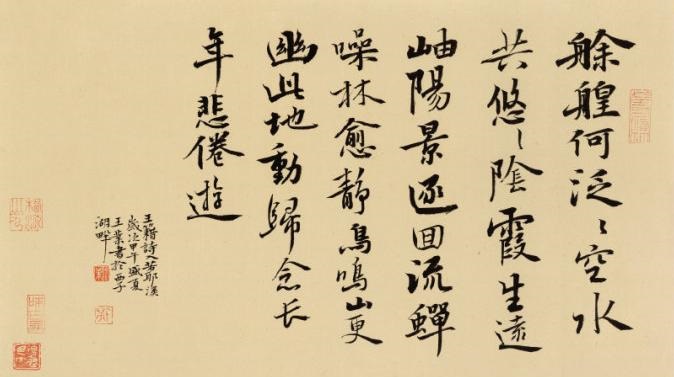 艅艎何泛〻空水
共悠〻陰霞生遠
岫陽景逐回流蟬
噪林愈靜鳥鳴山更
幽此地動歸念长
年悲倦遊
王籍詩入若耶溪
歲次甲午盛夏
王業書於西子
湖畔